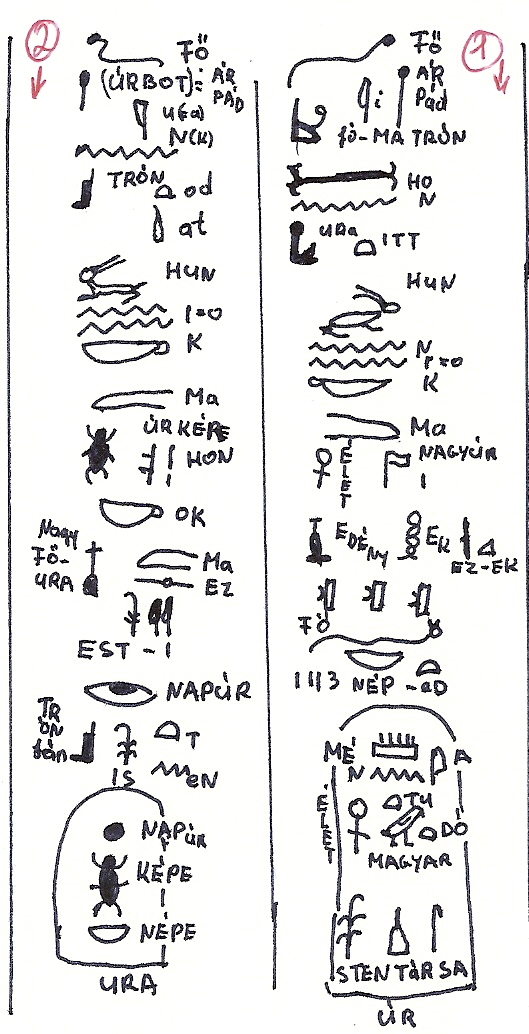 1
Fő
ÁR
PÁD
i
fő-MA TRÓN
HO
N
URa
ITT
HUN
N
r=o
K
Ma
ÉLET
NAGYÚR
I
EDÉNY
EK
EZ-EK
FŐ
1113 NÉP-aD
MÉ
N
A
ÉLET
TU
DÓ
MAGYAR
STENTÁRSA
ÚR
2
Fő
(ÚRBOT): ÁR
PÁD
U(a)
N(K)
TRÓN
od
at
HUN
1=0
K
Ma
ÚRKÉPE
HON
OK
Nagy
Fő-
URA
Ma
EZ
EST-I
NAPÚR
TRÓN
tán
T
IS
eN
NAPÚR
KÉPE
NÉPE
URA